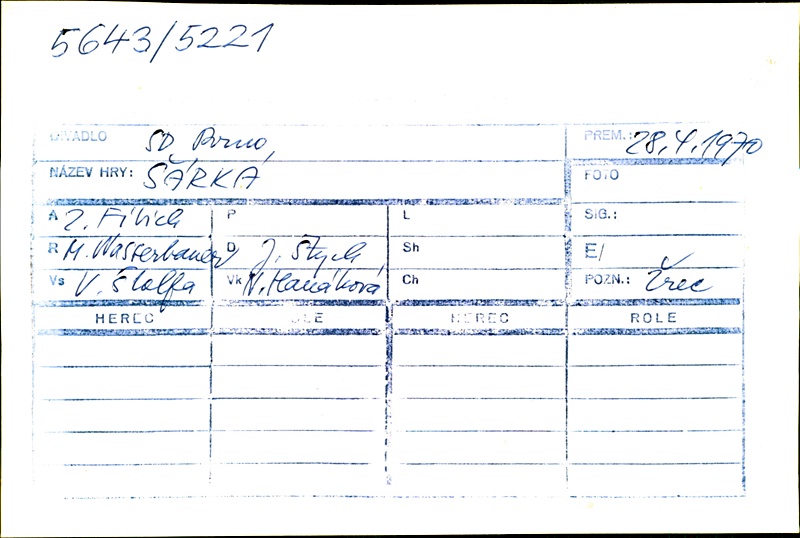 5643/5221
DIVADLO SD Brno, PREM.: 28.4.1970
NÁZEV HRY: ŠÁRKA FOTO
A Z. Fibich P L SIG.:
R M. Wasserbauer D J. Štych Sh E/
Vs V. Štolfa Vk N. Hanáková Ch POZN.: Žrec
HEREC ROLE HEREC ROLE